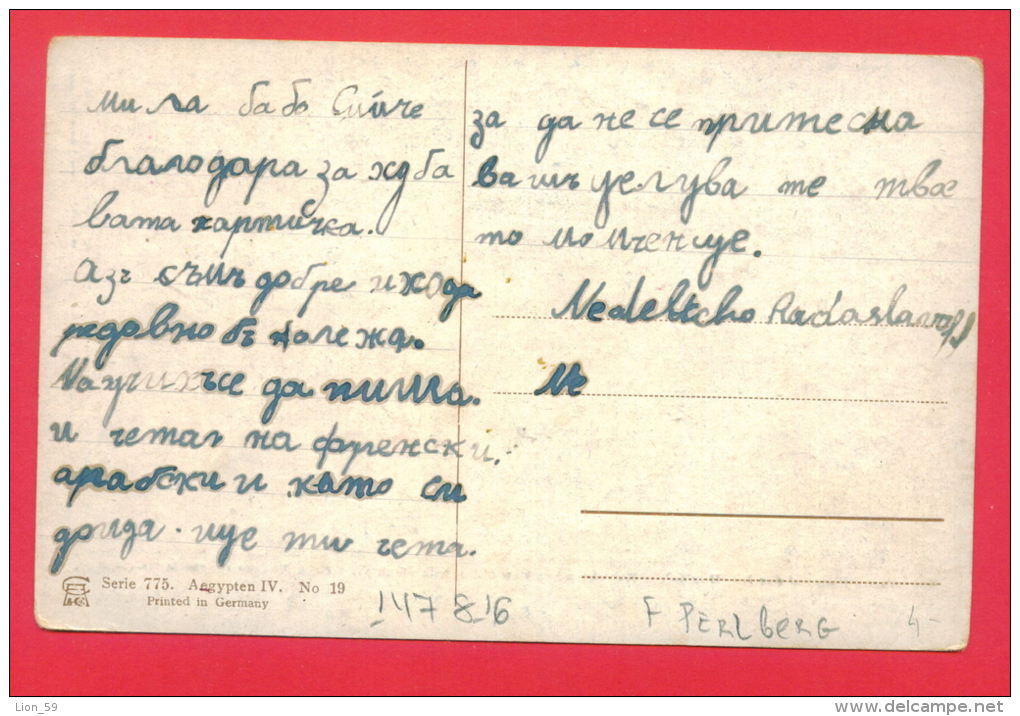 мила бабо Сийче
благодара за хдба
вата картичка.
Азъ съмъ добре и хода
редовно въ колежа.
Научихъсе да пиша.
и четатъ на френски.
арабски и като си
дойда. ище ти чета.
за да не се притесна
вашъ целува те твое
то момченце.
Nedeltcho Radaslavoff
Ne
Serie 775. Aegypten IV. No 19
Printed in Germany
147 816
F PERLBERG
4-
Lion_59
www.delcampe.net